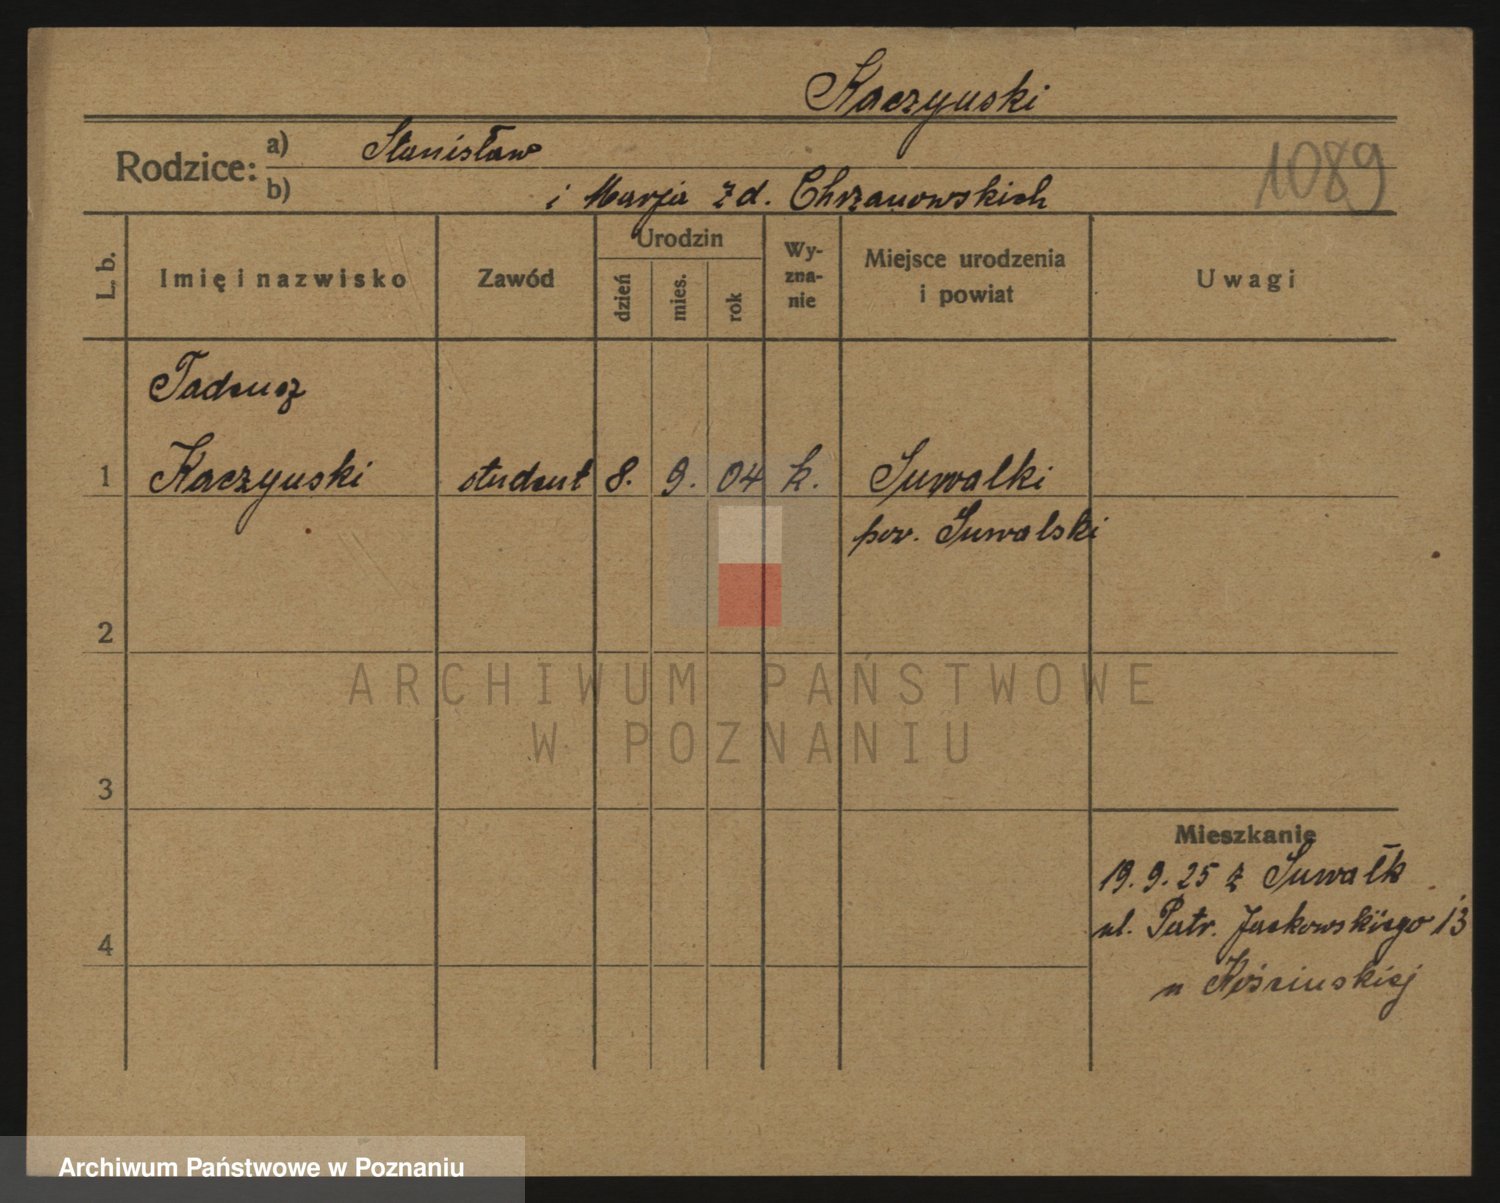 Kaczyński
Rodzice: a) Stanisław
b) i Marja z d. Chrzanowskich
1089
L. b.
Imię i nazwisko
Zawód
Urodzin
dzień
mies.
rok
Wy-
zna-
nie
Miejsce urodzenia
i powiat
Uwagi
Tadeusz
1 Kaczyński student 8. 9. 04 k. Suwałki
pow. Suwalski
2
ARCHIWUM PAŃSTWOWE
W POZNANIU
3
Mieszkanie
19. 9. 25 z Suwałk
ul. Patr. Jackowskiego 13
4
u
Archiwum Państwowe w Poznaniu